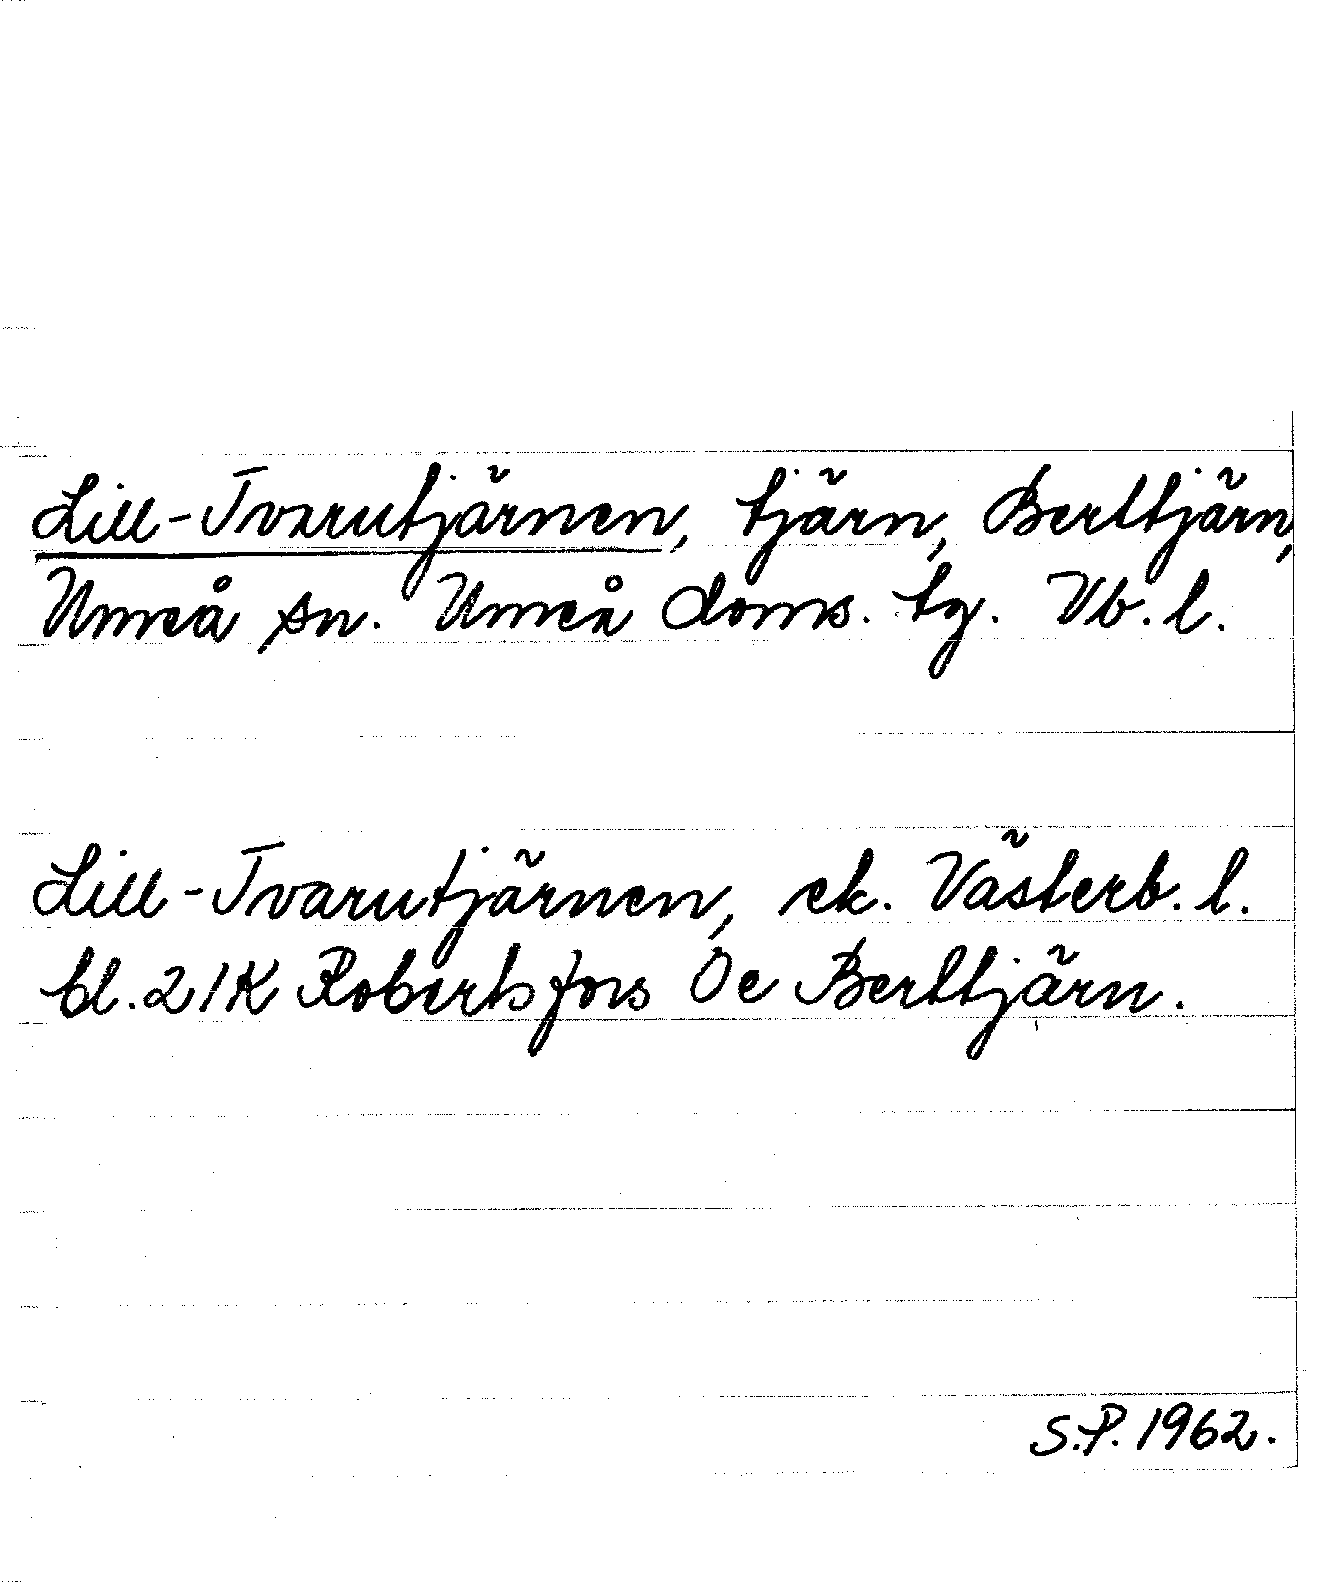 Lill-Tvarutjärnen, tjärn, Berttjärn,
Umeå sn. Umeå doms. tg. Vb. l.
Lill-Tvarutjärnen, ek. Västerb. l.
bl. 21K Robertsfors Oe Berttjärn.
S.P. 1962.